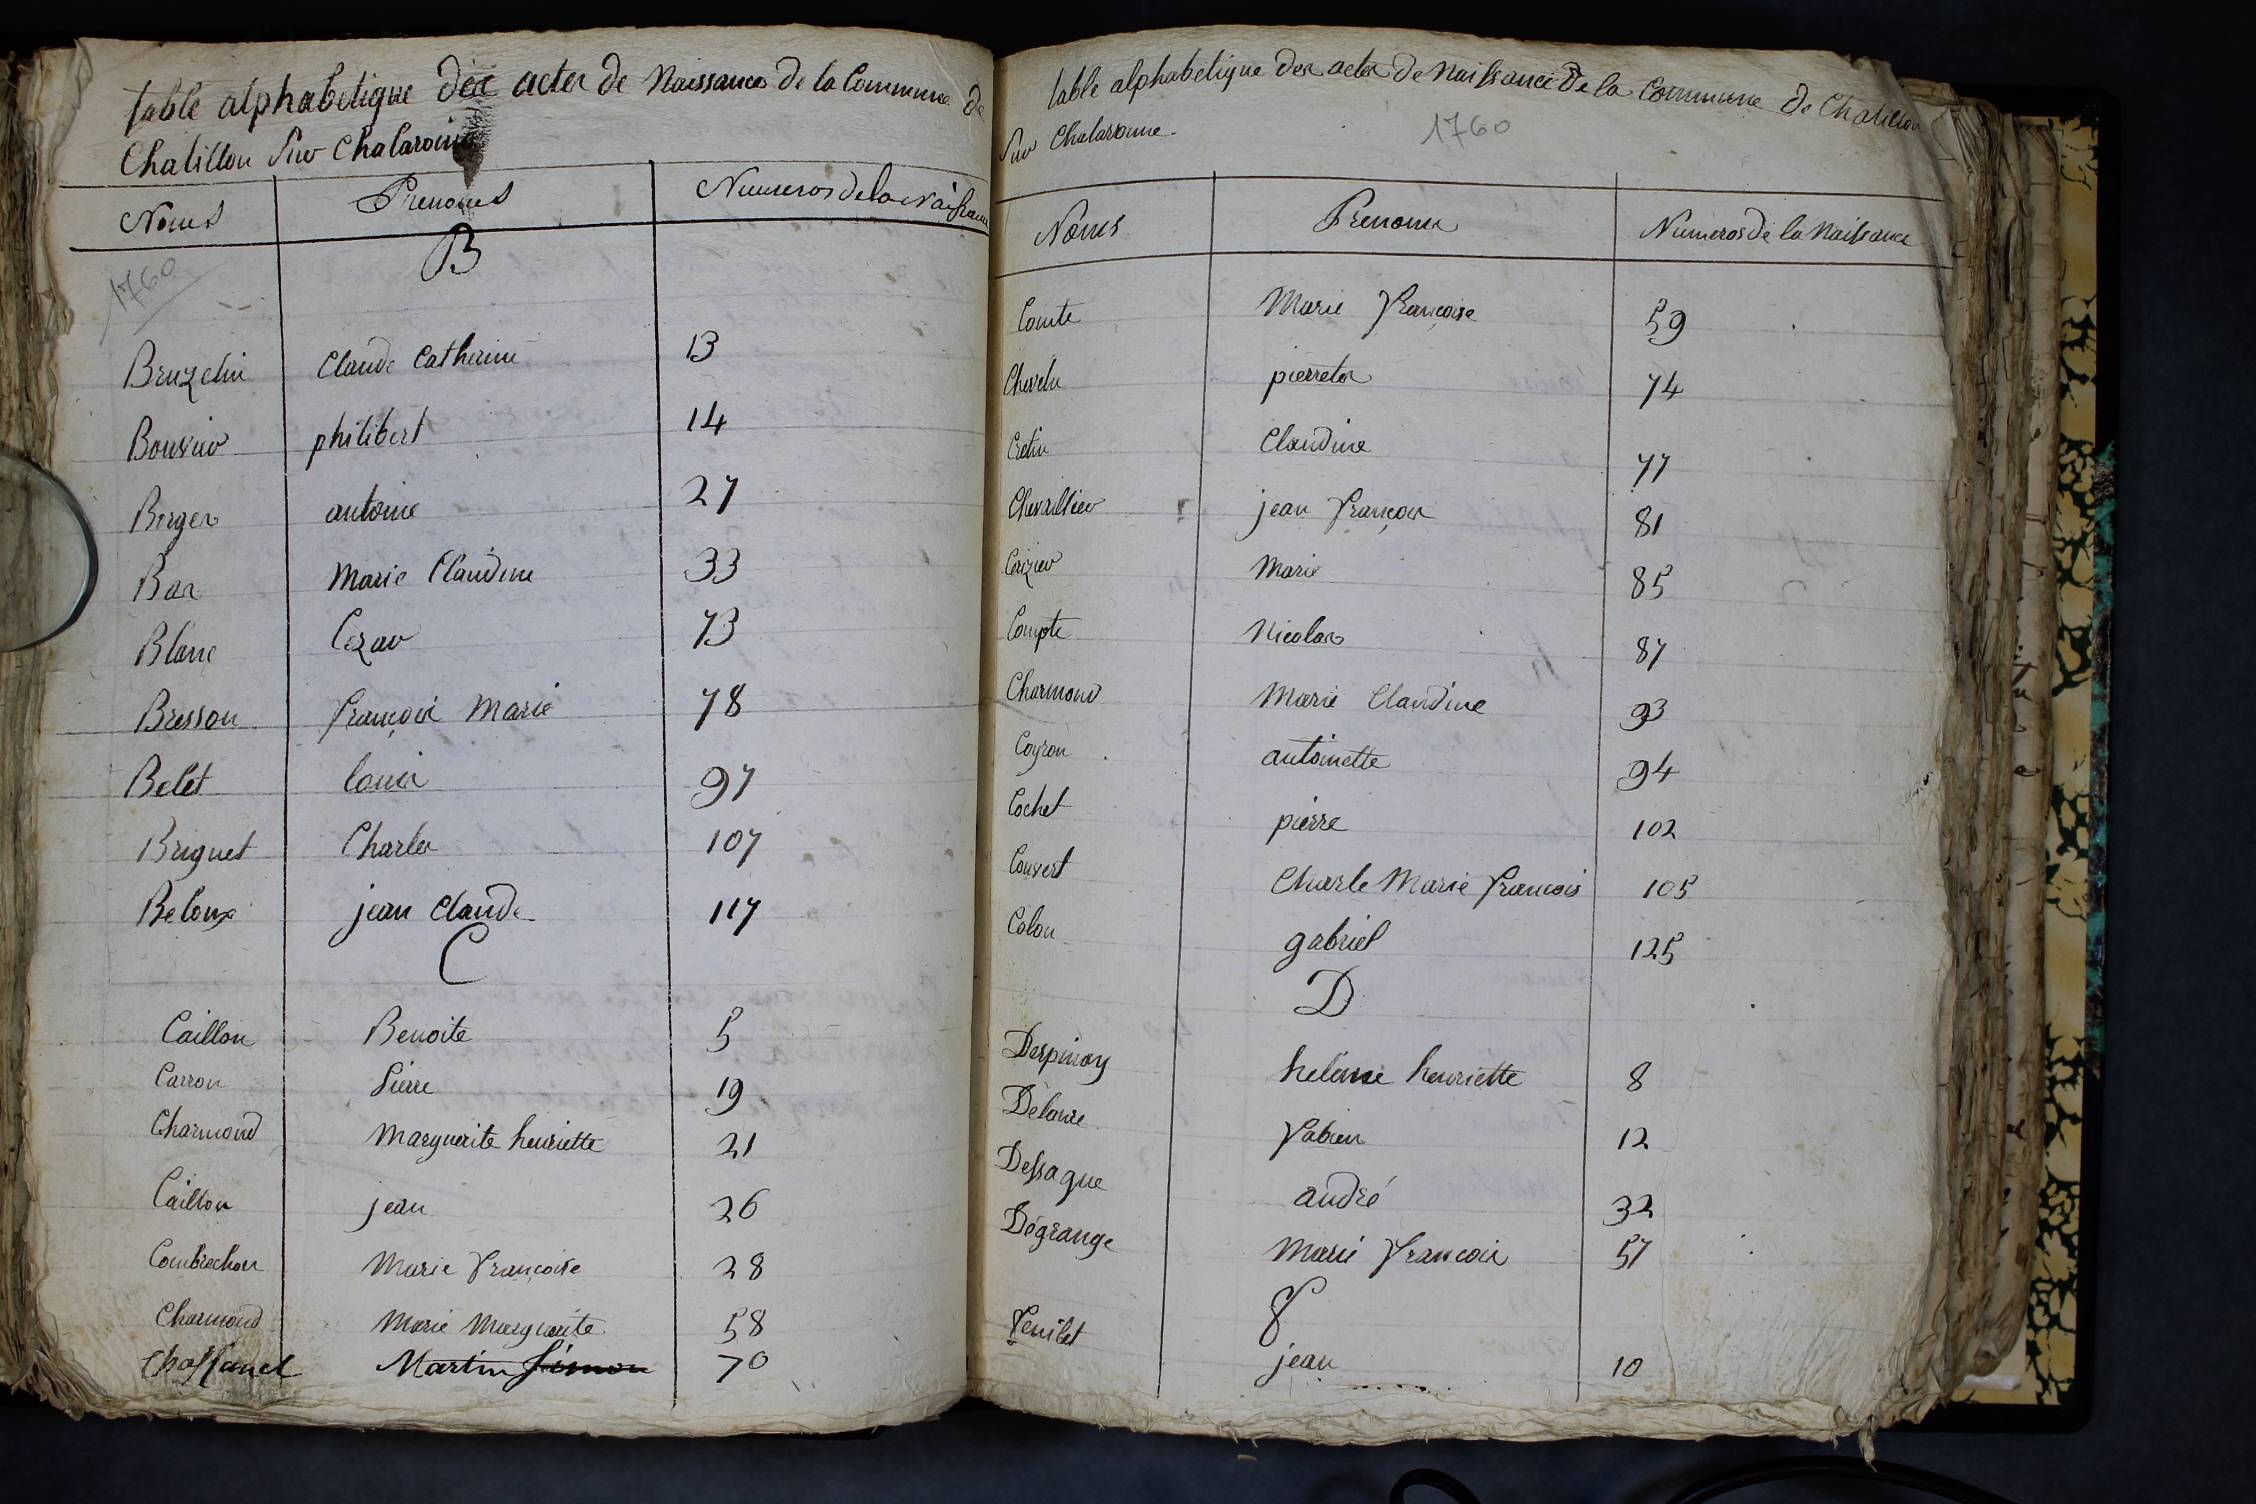 table alphabetique des actes de Naissances de la Commune de
Chatillon Sur Chalaronne
Noms Prenoms Numeros de la Naissance
B
1760
Bruzelin Claude Catherine 13
Bouvier philibert 14
Berger antoine 27
Bas Marie Claudine 33
Blanc Cezar 73
Bresson françois Marie 78
Belet louis 97
Briguet Charles 107
Beloux jean Claude 117
C
Caillon Benoite 5
Carron Pierre 19
Charmond Marguerite henriette 21
Caillon jean 26
Combrechon Marie françoise 28
Charmond Marie Marguerite 58
Chassanel Martin Simon 70
table alphabetique des actes de Naissance De la Commune de Chatillon
Sur Chalaronne
1760
Noms Prenoms Numeros de la Naissance
Comte Marie françoise 59
Chevelu pierrette 74
Cretin Claudine 77
Chevallier jean françois 81
Cerizier Marie 85
Compte Nicolas 87
Charmond Marie Claudine 93
Coyron antoinette 94
Cochet pierre 102
Couvert Charle Marie francois 105
Colon gabriel 125
D
Despinay heleine henriette 8
Delorme fabien 12
Dessague andré 32
Dégrange Marie francois 57
F
feuilet jean 10